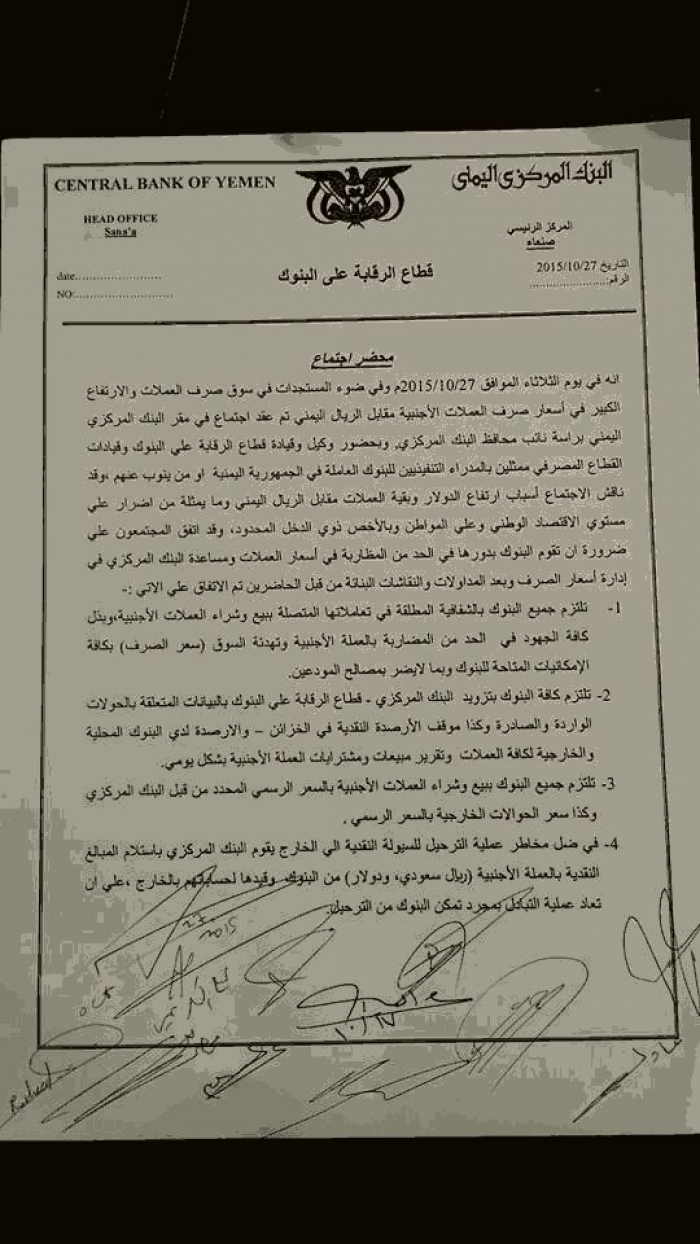 البنك المركزي اليمني
CENTRAL BANK OF YEMEN
HEAD OFFICE
Sana'a
المركز الرئيسي
صنعاء
التاريخ 2015/10/27
الرقم:........................
date........................
NO:........................
قطاع الرقابة على البنوك
محضر اجتماع
انه في يوم الثلاثاء الموافق 2015/10/27م وفي ضوء المستجدات في سوق صرف العملات والارتفاع
الكبير في أسعار صرف العملات الأجنبية مقابل الريال اليمني تم عقد اجتماع في مقر البنك المركزي
اليمني براسة نائب محافظ البنك المركزي, وبحضور وكيل وقيادة قطاع الرقابة علي البنوك وقيادات
القطاع المصرفي ممثلين بالمدراء التنفيذيين للبنوك العاملة في الجمهورية اليمنية او من ينوب عنهم ،وقد
ناقش الاجتماع أسباب ارتفاع الدولار وبقية العملات مقابل الريال اليمني وما يمثلة من اضرار علي
مستوي الاقتصاد الوطني وعلي المواطن وبالأخص ذوي الدخل المحدود، وقد اتفق المجتمعون علي
ضرورة ان تقوم البنوك بدورها في الحد من المظاربة في أسعار العملات ومساعدة البنك المركزي في
إدارة أسعار الصرف وبعد المداولات والنقاشات البنائة من قبل الحاضرين تم الاتفاق علي الاتي :-
1- تلتزم جميع البنوك بالشفافية المطلقة في تعاملاتها المتصلة ببيع وشراء العملات الأجنبية،وبذل
كافة الجهود في الحد من المضاربة بالعملة الأجنبية وتهدئة السوق (سعر الصرف) بكافة
الإمكانيات المتاحة للبنوك وبما لايضر بمصالح المودعين.
2- تلتزم كافة البنوك بتزويد البنك المركزي - قطاع الرقابة علي البنوك بالبيانات المتعلقة بالحولات
الواردة والصادرة وكذا موقف الأرصدة النقدية في الخزائن – والارصدة لدي البنوك المحلية
والخارجية لكافة العملات وتقرير مبيعات ومشتريات العملة الأجنبية بشكل يومي.
3- تلتزم جميع البنوك ببيع وشراء العملات الأجنبية بالسعر الرسمي المحدد من قبل البنك المركزي
وكذا سعر الحوالات الخارجية بالسعر الرسمي .
4- في ضل مخاطر عملية الترحيل للسيولة النقدية الي الخارج يقوم البنك المركزي باستلام المبالغ
النقدية بالعملة الأجنبية (ريال سعودي، ودولار) من البنوك وقيدها لحساباتهم بالخارج ،علي ان
تعاد عملية التبادل بمجرد تمكن البنوك من الترحيل.
2015